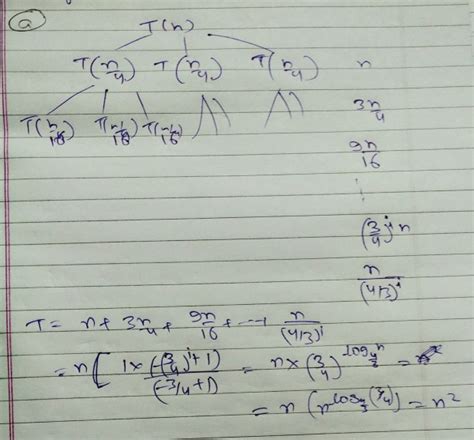 a
T(n)
T(n/4) T(n/4) T(n/4) n
T(n/16) T(n/16) T(n/16) 3n/4
9n/16
⋮
(3/4)^i n
n/(4/3)^i
T = n + 3n/4 + 9n/16 + --- n/(4/3)^i
= n [ 1 × (-(3/4)^i + 1) / (-3/4 + 1) = n × (3/4)^log
= n (n^log (3/4)) = n^2